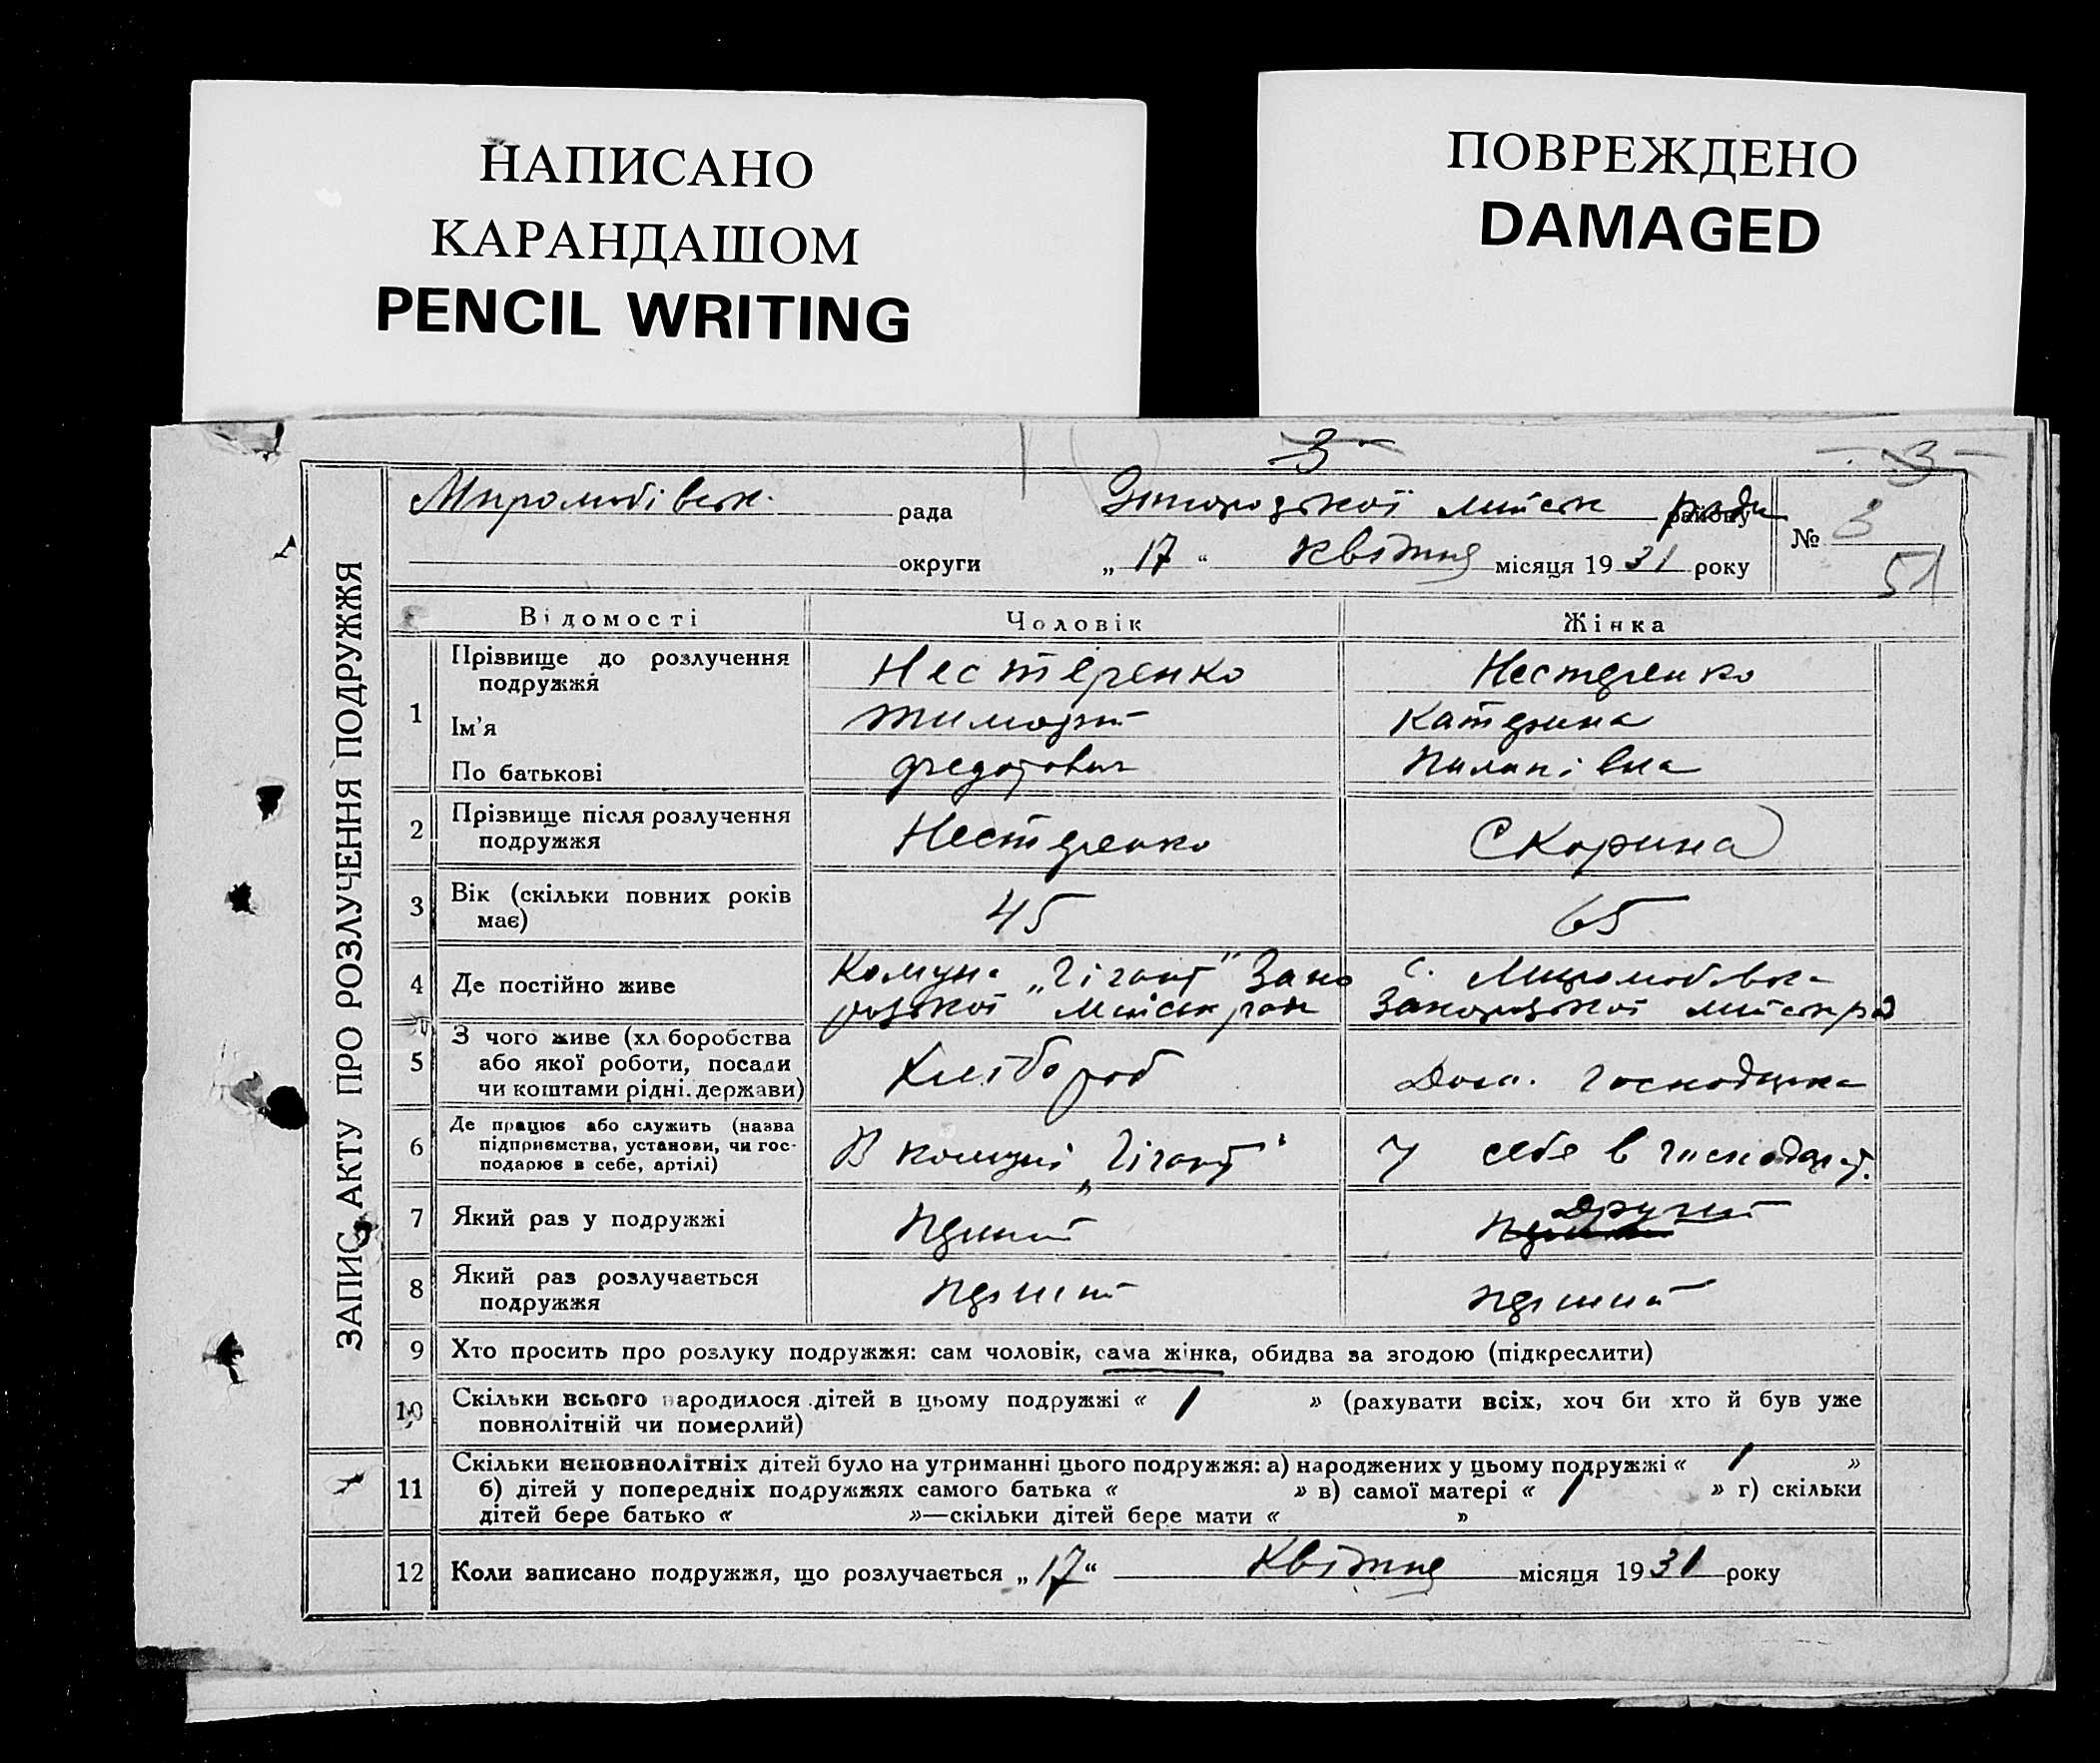 НАПИСАНО
КАРАНДАШОМ
PENCIL WRITING
ПОВРЕЖДЕНО
DAMAGED
3
3
ЗАПИС АКТУ ПРО РОЗЛУЧЕННЯ ПОДРУЖЖЯ
рада міськ ради району
№ 3
округи „ 17 “ Квітня місяця 1931 року
51
Відомості Чоловік Жінка
1 Прізвище до розлучення подружжя Нестеренко Нестеренко
Ім'я Тимофій Катерина
По батькові Пилипівна
2 Прізвище після розлучення подружжя Нестеренко Скорина
3 Вік (скільки повних років має) 45 65
4 Де постійно живе Комуна „Гігант" с.
5 З чого живе (хліборобства або якої роботи, посади чи коштами рідні. держави) Хлібороб Дом. господарка
6 Де працює або служить (назва підприємства, установи, чи господарює в себе, артілі) В комуні „Гігант" У себе в господар.
7 Який раз у подружжі Перший Другий
8 Який раз розлучається подружжя Перший Перший
9 Хто просить про розлуку подружжя: сам чоловік, сама жінка, обидва за згодою (підкреслити)
10 Скільки всього народилося дітей в цьому подружжі « 1 » (рахувати всіх, хоч би хто й був уже
повнолітній чи померлий)
11 Скільки неповнолітніх дітей було на утриманні цього подружжя: а) народжених у цьому подружжі « 1 »
б) дітей у попередніх подружжях самого батька « » в) самої матері « 1 » г) скільки
дітей бере батько « »—скільки дітей бере мати « »
12 Коли записано подружжя, що розлучається „17“ Квітня місяця 1931 року